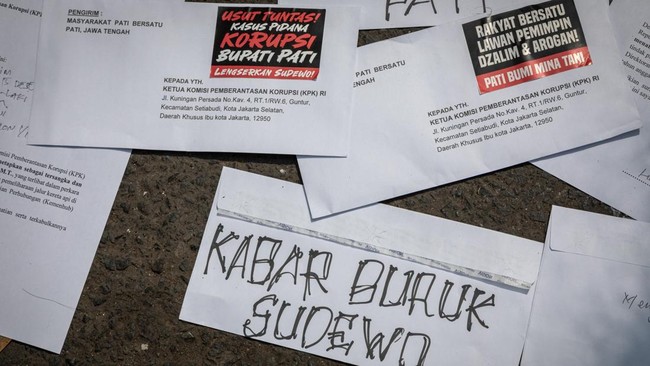 PENGIRIM :
MASYARAKAT PATI BERSATU
PATI, JAWA TENGAH
USUT TUNTAS!
KASUS PIDANA
KORUPSI
BUPATI PATI
LENGSERKAN SUDEWO!
KEPADA YTH.
KETUA KOMISI PEMBERANTASAN KORUPSI (KPK) RI
Jl. Kuningan Persada No.Kav. 4, RT.1/RW.6, Guntur,
Kecamatan Setiabudi, Kota Jakarta Selatan,
Daerah Khusus Ibu kota Jakarta, 12950
PATI
PATI BERSATU
RAKYAT BERSATU
LAWAN PEMIMPIN
DZALIM & AROGAN!
PATI BUMI MINA TANI
KEPADA YTH.
KETUA KOMISI PEMBERANTASAN KORUPSI (KPK) RI
Jl. Kuningan Persada No.Kav. 4, RT.1/RW.6, Guntur,
Kecamatan Setiabudi, Kota Jakarta Selatan,
Daerah Khusus Ibu kota Jakarta, 12950
Korupsi (KPK)
tetapkan sebagai tersangka dan
M.T., yang terlibat dalam perkara
pemeliharaan jalur kereta api di
Perhubungan (Kemenhub)
KABAR BURUK
SUDEWO